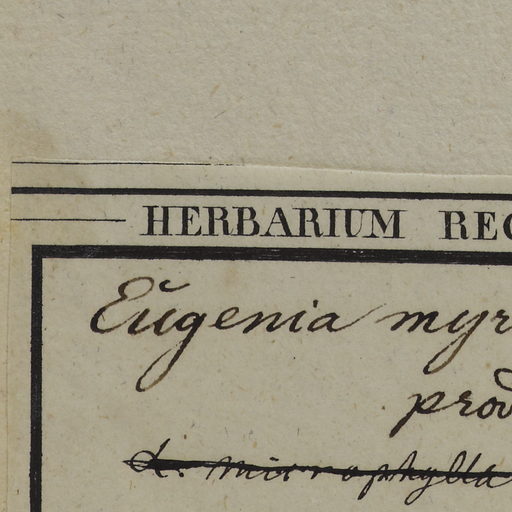 HERBARIUM REG
Eugenia myr
prod
d. microphylla